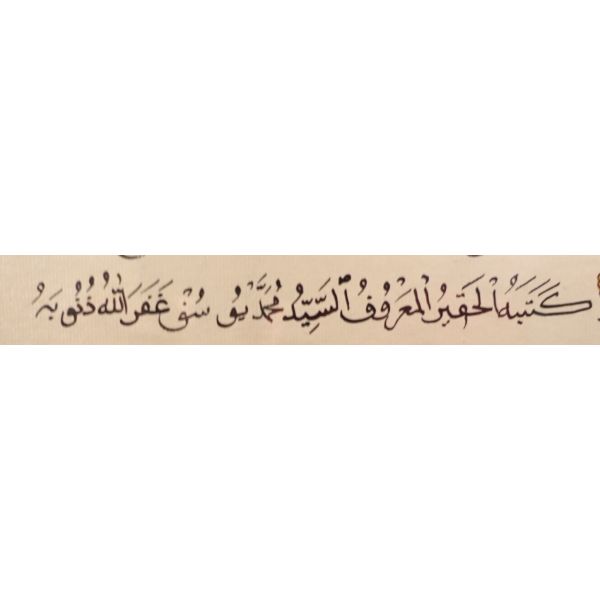 كَتَبَهُ الْحَقِيرُ الْمَعْرُوفُ السَّيِّدُ مُحَمَّدْ يُوسُفْ غَفَرَ اللّٰهُ ذُنُوبَهُ